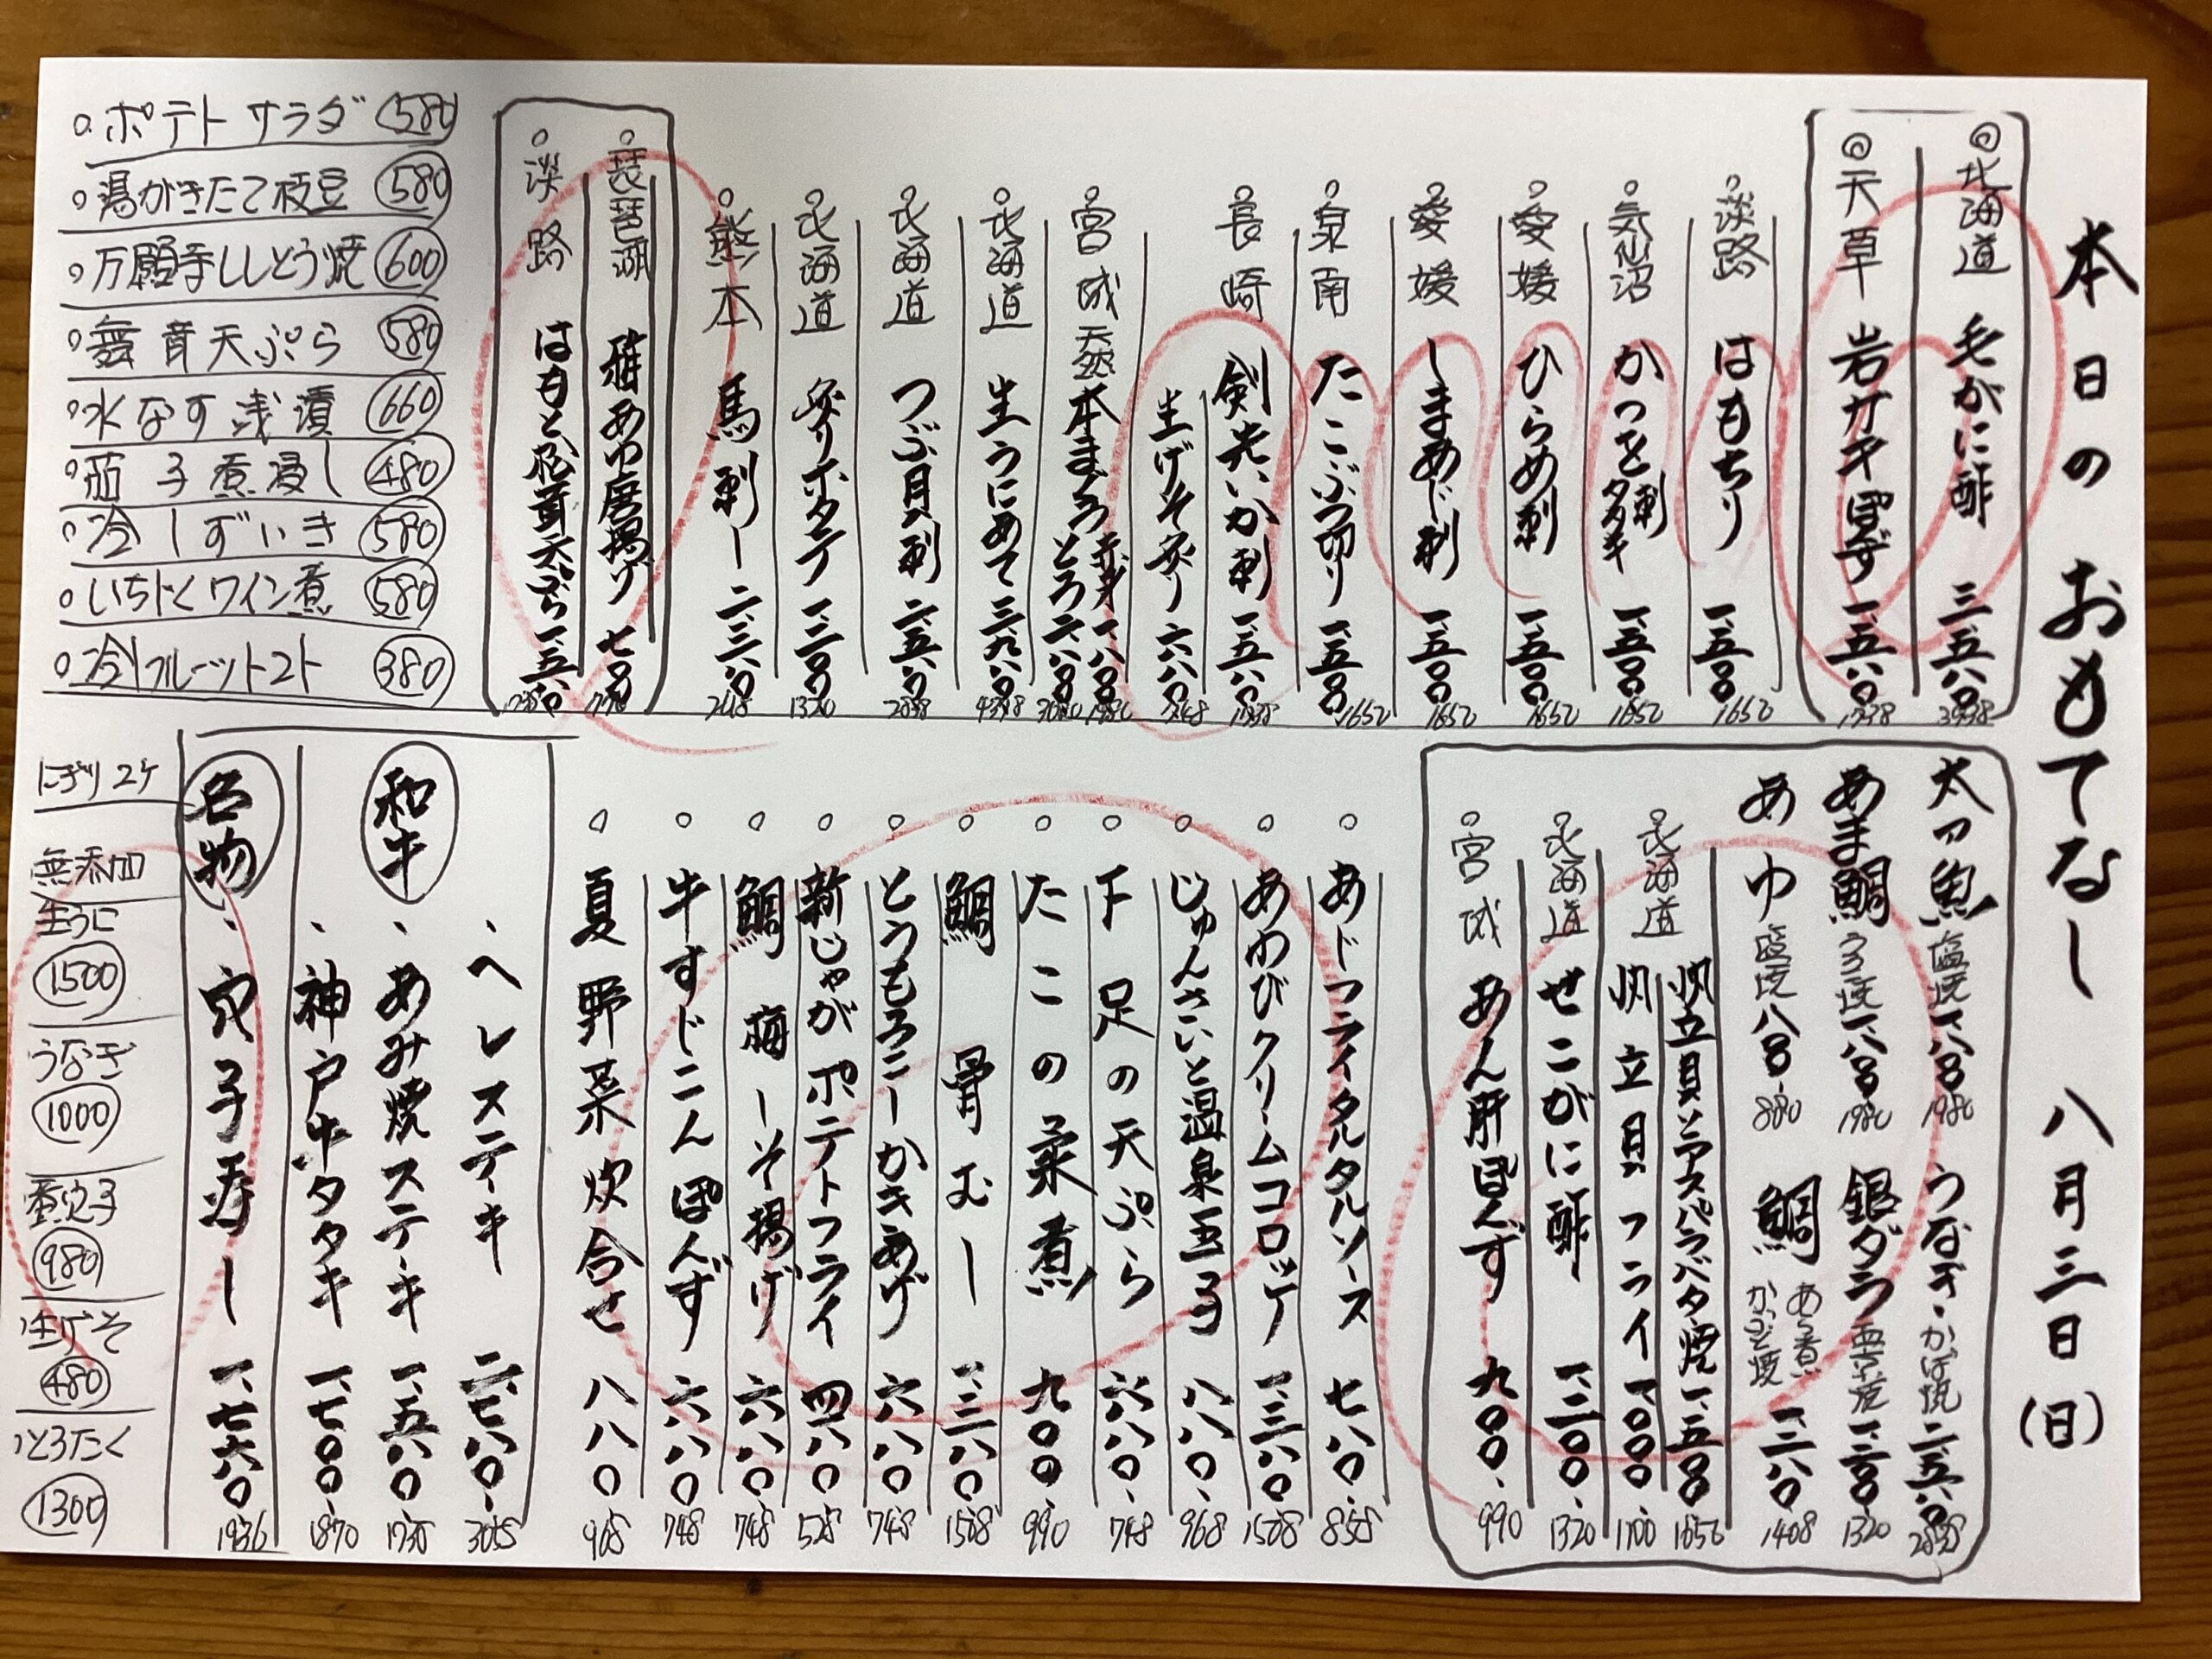 本日の おもてなし 八月三日(日)
◎北海道 毛がに酢 三、五八〇 3938
◎天草 岩ガキぽず 一、五八〇 1738
淡路 はもちり 一、五〇〇 1650
気仙沼 かつを刺タタキ 一、五〇〇 1650
愛媛 ひらめ刺 一、五〇〇 1650
愛媛 しまあじ刺 一、五〇〇 1650
泉南 たこぶつ切り 一、五〇〇 1650
長崎 剣先いか刺 一、五八〇 1738
生げそ炙り 六八〇 748
宮城 天然本まぐろ 赤身 一、八〇〇 1980
とろ 二、八〇〇 3080
北海道 生うにあて 三、九八〇 4378
北海道 つぶ貝刺 二、五八〇 2838
北海道 炙りホタテ 一、二〇〇 1320
熊本 馬刺し
琵琶湖 稚あゆ唐揚げ 七〇〇 770
淡路 はもと松茸天ぷら 一、五八〇 1738
ポテトサラダ 580
湯がきたて枝豆 580
万願寺ししとう焼 600
舞茸天ぷら 580
水なす浅漬 660
茄子煮浸し 480
冷しずいき 580
いちじくワイン煮 580
冷フルーツトマト 380
太刀魚 塩焼 一、八〇〇 1980
うなぎ・かば焼 二、五八〇 2838
あま鯛 うろこ焼 一、八〇〇 1980
銀ダラ 西京焼 一、二〇〇 1320
あゆ 塩焼 八〇〇 880
鯛 あら煮 かぶと焼 一、二八〇 1408
北海道 帆立貝とアスパラバター焼 一、五〇〇 1650
帆立貝フライ 一、〇〇〇 1100
北海道 せこがに酢 一、二〇〇 1320
宮城 あん肝ぽんず 九〇〇 990
あじフライタルタルソース 七八〇 858
あわびクリームコロッケ 一、三八〇 1508
じゅんさいと温泉玉子 八八〇 968
下足の天ぷら 六八〇 748
たこの柔煮 九〇〇 990
鯛骨むし 一、三八〇 1508
とうもろこしかきあげ 六八〇 748
新じゃがポテトフライ 四八〇 528
鯛梅しそ揚げ 六八〇 748
牛すじこんぽんず 六八〇 748
夏野菜炊合せ 八八〇 968
和牛
ヘレステーキ 二、七八〇 3058
あみ焼ステーキ 一、五八〇 1738
神戸牛タタキ 一、七〇〇 1870
名物
穴子寿し 一、七六〇 1936
にぎり2ケ
無添加
生うに
1500
うなぎ
1000
煮穴子
980
生げそ
480
とろたく
1300